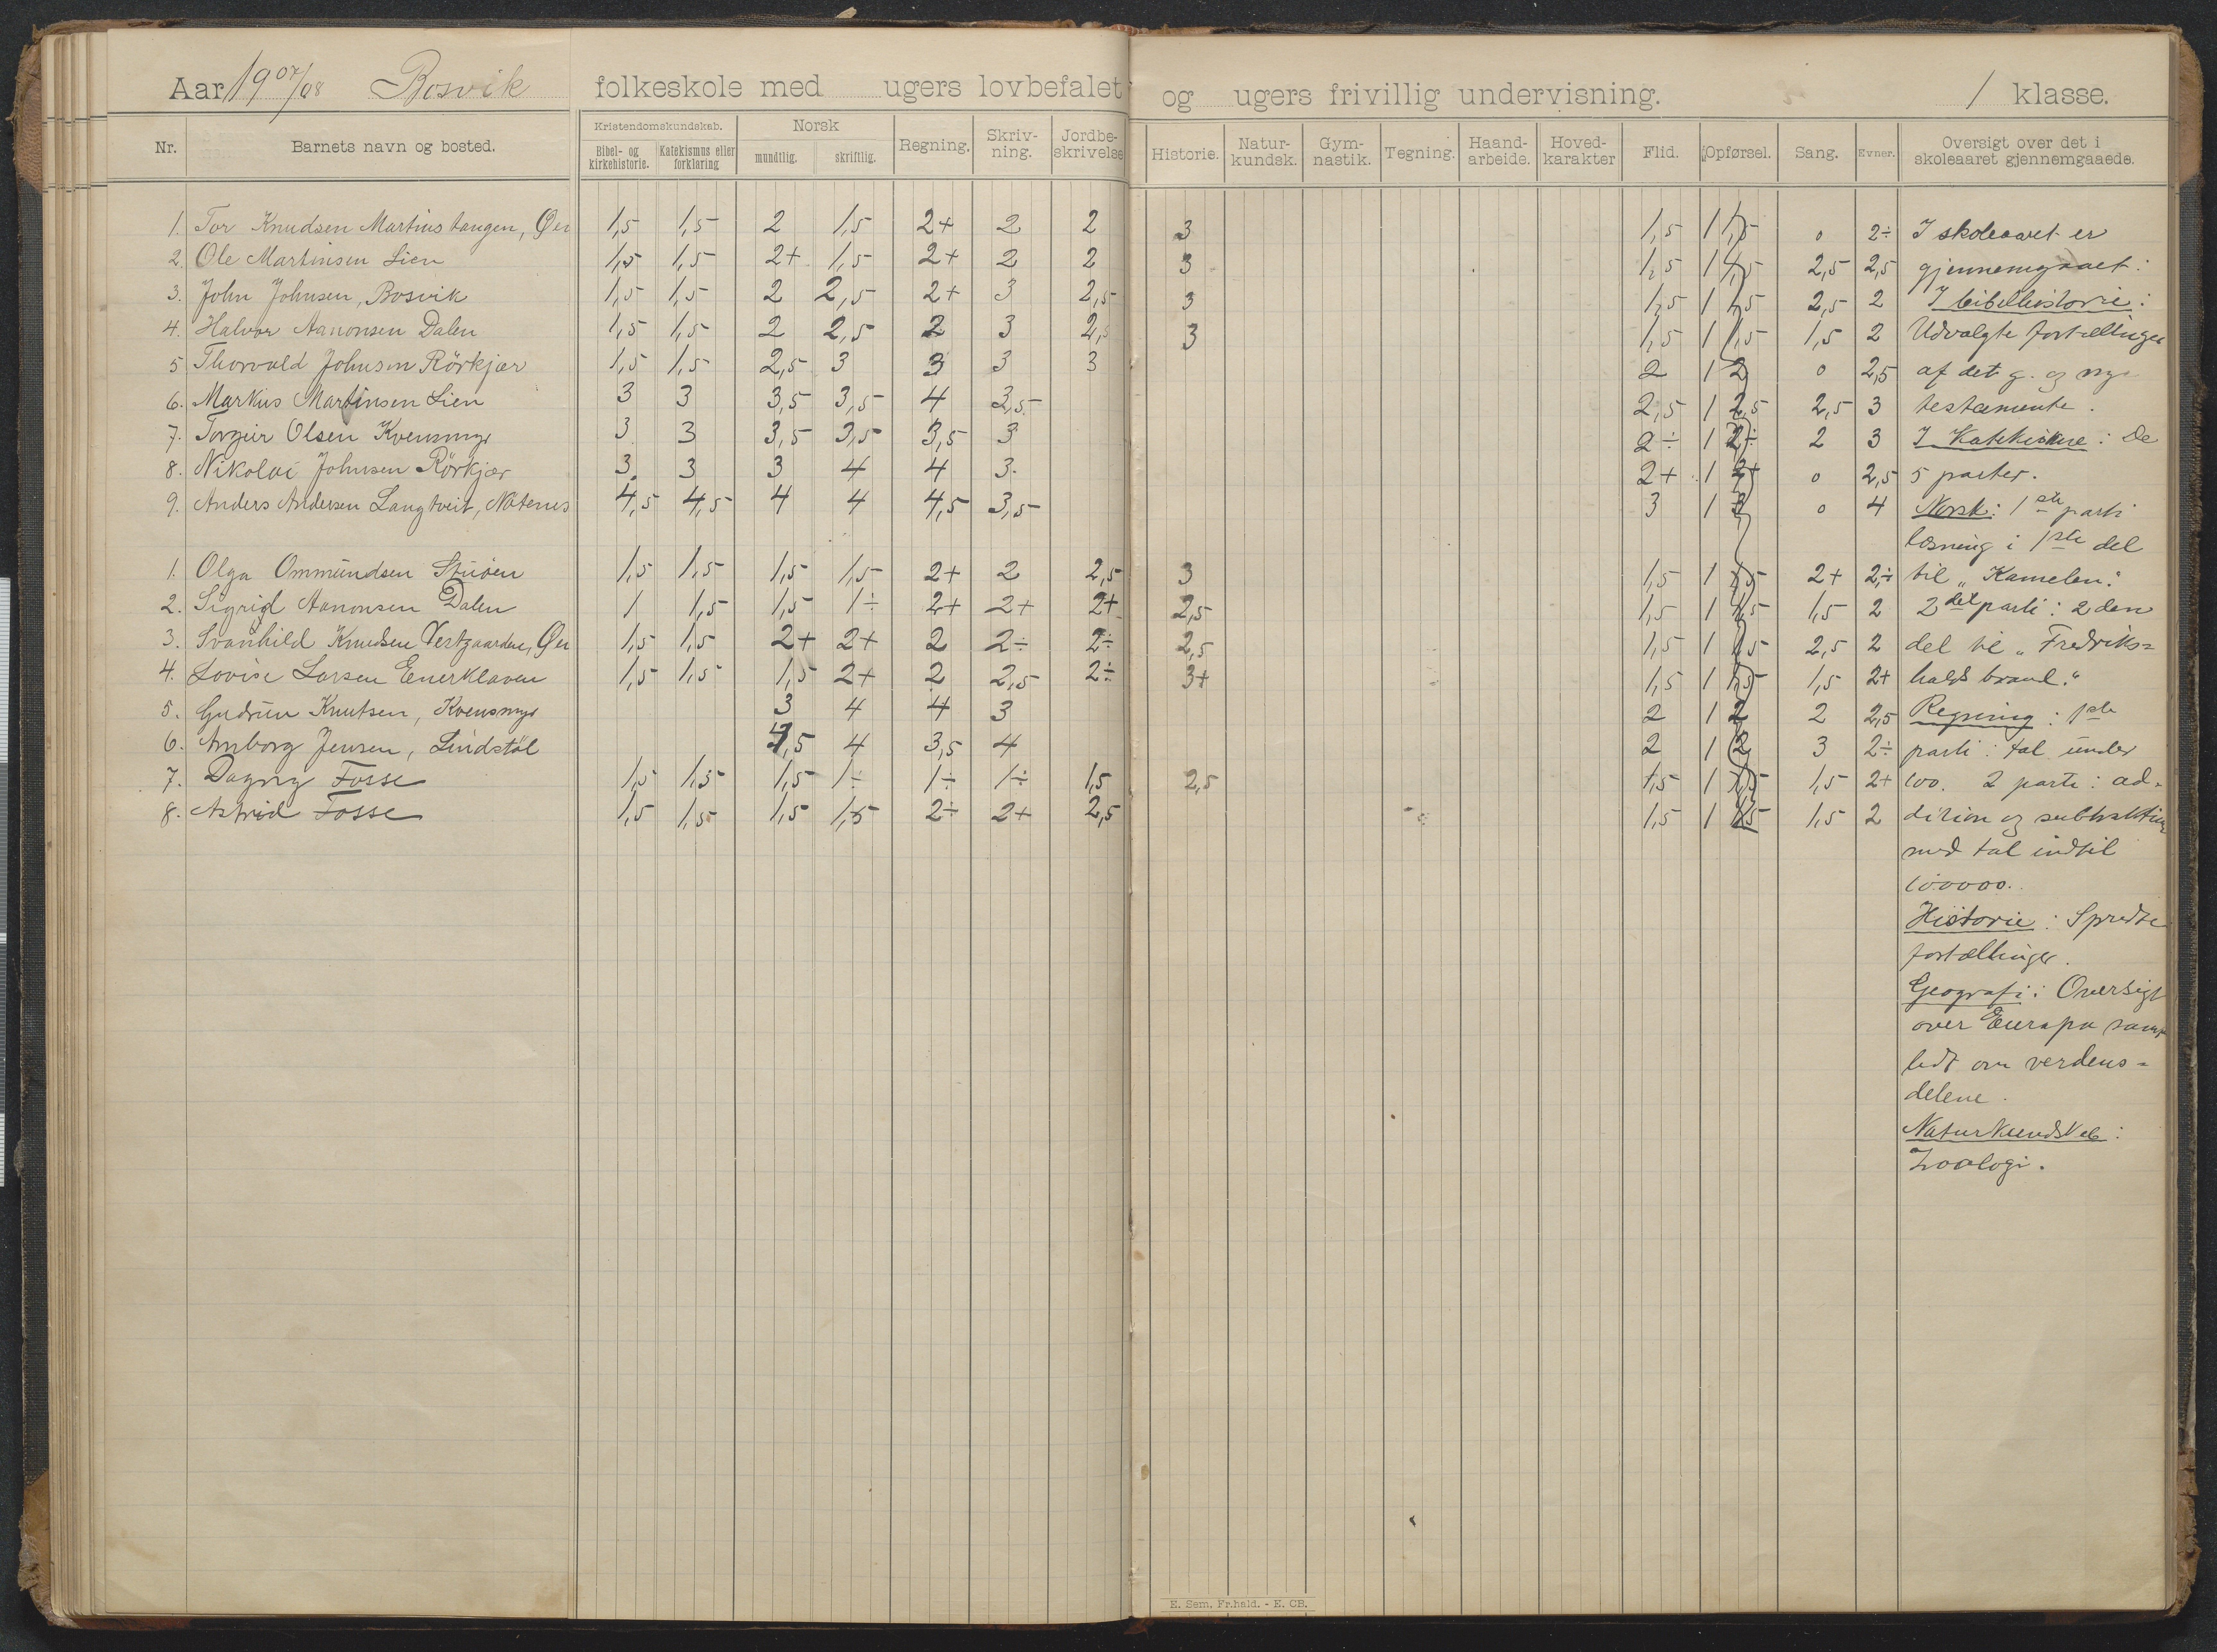 Aar 1907/08 Bosvik folkeskole med ugers lovbefalet og ugers frivillig undervisning. 1 klasse.
Nr. Barnets navn og bosted. Kristendomskundskab. Bibel- og kirkehistorie. Katekismus eller forklaring Norsk mundtlig. skriftlig. Regning. Skriv-ning. Jordbe-skrivelse Historie. Natur-kundsk. Gym-nastik. Tegning. Haand-arbeide. Hoved-karakter Flid. Opførsel. Sang. Evner. Oversigt over det i skoleaaret gjennemgaaede.
1. Tor Knudsen Martinstangen, Øen 1,5 1,5 2 1,5 2+ 2 2 3 1,5 1 1,5 0 2÷ I skoleaaret er
2. Ole Martinsen Lien 1,5 1,5 2+ 1,5 2+ 2 2 3 1,5 1 1,5 2,5 2,5 gjennemgaaet:
3. John Johnsen, Bosvik 1,5 1,5 2 2,5 2+ 3 2,5 3 1,5 1 1,5 2,5 2 I bibelhistorie:
4. Halvor Aanonsen Dalen 1,5 1,5 2 2,5 2 3 2,5 3 1,5 1 1,5 1,5 2 Udvalgte fortællinger
5 Thorvald Johnsen Rörkjær 1,5 1,5 2,5 3 3 3 3 2 1 2 0 2,5 af det g. og nye
6. Markus Martinsen Lien 3 3 3,5 3,5 4 3,5 2,5 1 2,5 2,5 3 testamente.
7. Torgeir Olsen Kvensmyr 3 3 3,5 3,5 3,5 3 2÷ 1 2÷ 2 3 I Katekisme: De
8. Nikolai Johnsen Rörkjær 3 3 3 4 4 3 2+ 1 2+ 0 2,5 5 parter.
9. Anders Andersen Langtveit, Natenes 4,5 4,5 4 4 4,5 3,5 3 1 3 0 4 Norsk: 1ste parti
læsning i 1ste del
1. Olga Ommundsen Stuöen 1,5 1,5 1,5 1,5 2+ 2 2,5 3 1,5 1 1,5 2+ 2÷ til "Kamelen."
2. Sigrid Aanonsen Dalen 1 1,5 1,5 1÷ 2+ 2+ 2+ 2,5 1,5 1 1,5 1,5 2 2det parti: 2den
3. Svanhild Knudsen Vestgaarden, Øen 1,5 1,5 2+ 2+ 2 2÷ 2÷ 2,5 1,5 1 1,5 2,5 2 del til "Fredriks=
4. Lovise Larsen Enerklaven 1,5 1,5 1,5 2+ 2 2,5 2÷ 3+ 1,5 1 1,5 1,5 2+ halds brand."
5. Gudrun Knutsen, Kvensmyr 3 4 4 3 2 1 2 2 2,5 Regning: 1ste
6. Anborg Jensen, Lindstöl 3,5 4 3,5 4 2 1 2 3 2÷ parti: tal under
7. Dagny Fosse 1,5 1,5 1,5 1÷ 1÷ 1÷ 1,5 2,5 1,5 1 1,5 1,5 2+ 100. 2 parti: ad-
8. Astrid Fosse 1,5 1,5 1,5 1,5 2÷ 2+ 2,5 1,5 1 1,5 1,5 2 dition og subtraktion
med tal indtil
100000.
Historie: Spredte
fortællinger.
Geografi: Oversigt
over Europa samt
lidt om verdens=
delene.
Naturkundskab:
Zoologi.
E. Sem. Fr.hald. - E. CB.